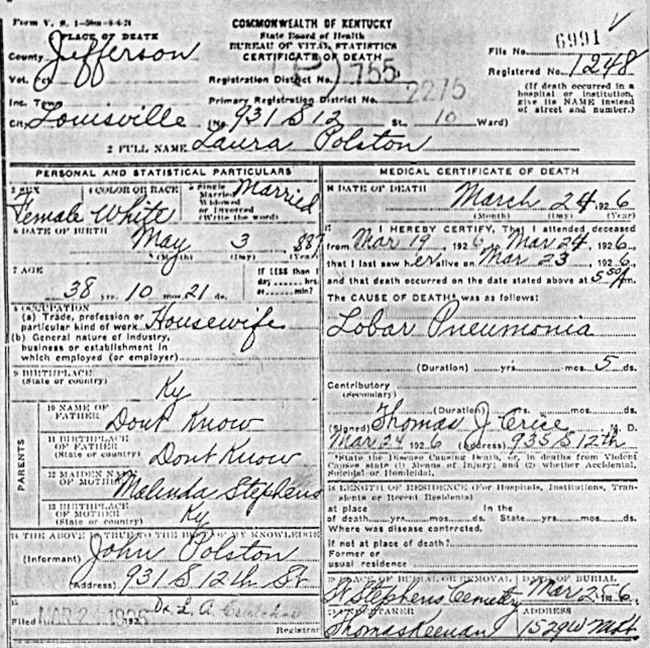 Form V. S. 1-50m-6-6-24
COMMONWEALTH OF KENTUCKY
State Board of Health
BUREAU OF VITAL STATISTICS
CERTIFICATE OF DEATH
1 PLACE OF DEATH
County Jefferson
Vot. Pct.
Inc. Town
City Louisville
Registration District No. 755
Primary Registration District No. 2275
(No. 931 S 12 St. 10 Ward)
File No. 6991
Registered No. 1248
(If death occurred in a
hospital or institution,
give its NAME instead
of street and number.)
2 FULL NAME Laura Polston
PERSONAL AND STATISTICAL PARTICULARS
3 SEX Female
4 COLOR OR RACE White
5 Single
Married
Widowed
or Divorced
(Write the word) Married
6 DATE OF BIRTH May 3 887
(Month) (Day) (Year)
7 AGE
38 yrs. 10 mos. 21 ds.
If LESS than 1
day ...... hrs.
or ...... min?
8 OCCUPATION
(a) Trade, profession or
particular kind of work Housewife
(b) General nature of industry,
business or establishment in
which employed (or employer)
9 BIRTHPLACE
(State or country) Ky
PARENTS
10 NAME OF
FATHER Dont Know
11 BIRTHPLACE
OF FATHER
(State or country) Dont Know
12 MAIDEN NAME
OF MOTHER Malinda Stephens
13 BIRTHPLACE
OF MOTHER
(State or country) Ky
14 THE ABOVE IS TRUE TO THE BEST OF MY KNOWLEDGE
(Informant) John Polston
(Address) 931 S 12th St
15
Filed MAR 2 192
Dr. L. A.
Registrar
MEDICAL CERTIFICATE OF DEATH
16 DATE OF DEATH
March 24 1926
(Month) (Day) (Year)
17 I HEREBY CERTIFY, That I attended deceased
from Mar 19, 1926, to Mar 24, 1926,
that I last saw her alive on Mar 23, 1926,
and that death occurred on the date stated above at m.
The CAUSE OF DEATH* was as follows:
Lobar Pneumonia
(Duration) yrs. mos. 5 ds.
Contributory
(Secondary)
(Duration) yrs. mos. ds.
(Signed) Thomas J. Crice M. D.
Mar 24 1926 (Address) 935 S 12th
*State the Disease Causing Death, or, in deaths from Violent
Causes state (1) Means of Injury; and (2) whether Accidental,
Suicidal or Homicidal.
18 LENGTH OF RESIDENCE (For Hospitals, Institutions, Tran-
sients or Recent Residents)
at place In the
of death yrs. mos. ds. State yrs. mos. ds.
Where was disease contracted,
if not at place of death?
Former or
usual residence
19 PLACE OF BURIAL OR REMOVAL DATE OF BURIAL
St Stephens Cemetry Mar 25 1926
20 UNDERTAKER ADDRESS
Thomas Keenan 1529 W Mkt